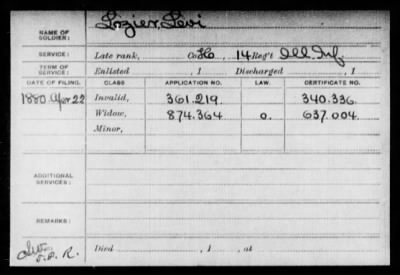 NAME OF SOLDIER: Lozier, Levi
SERVICE: Late rank, Co. H, 14 Reg't Ill. Inf.
TERM OF SERVICE: Enlisted , 1 Discharged , 1
DATE OF FILING. CLASS. APPLICATION NO. LAW. CERTIFICATE NO.
1880 Apr 22 Invalid, 361.219. 340.336.
Widow, 874.364 O. 637.004.
Minor,
ADDITIONAL SERVICES:
REMARKS:
G.A.R.
Died , 1 , at